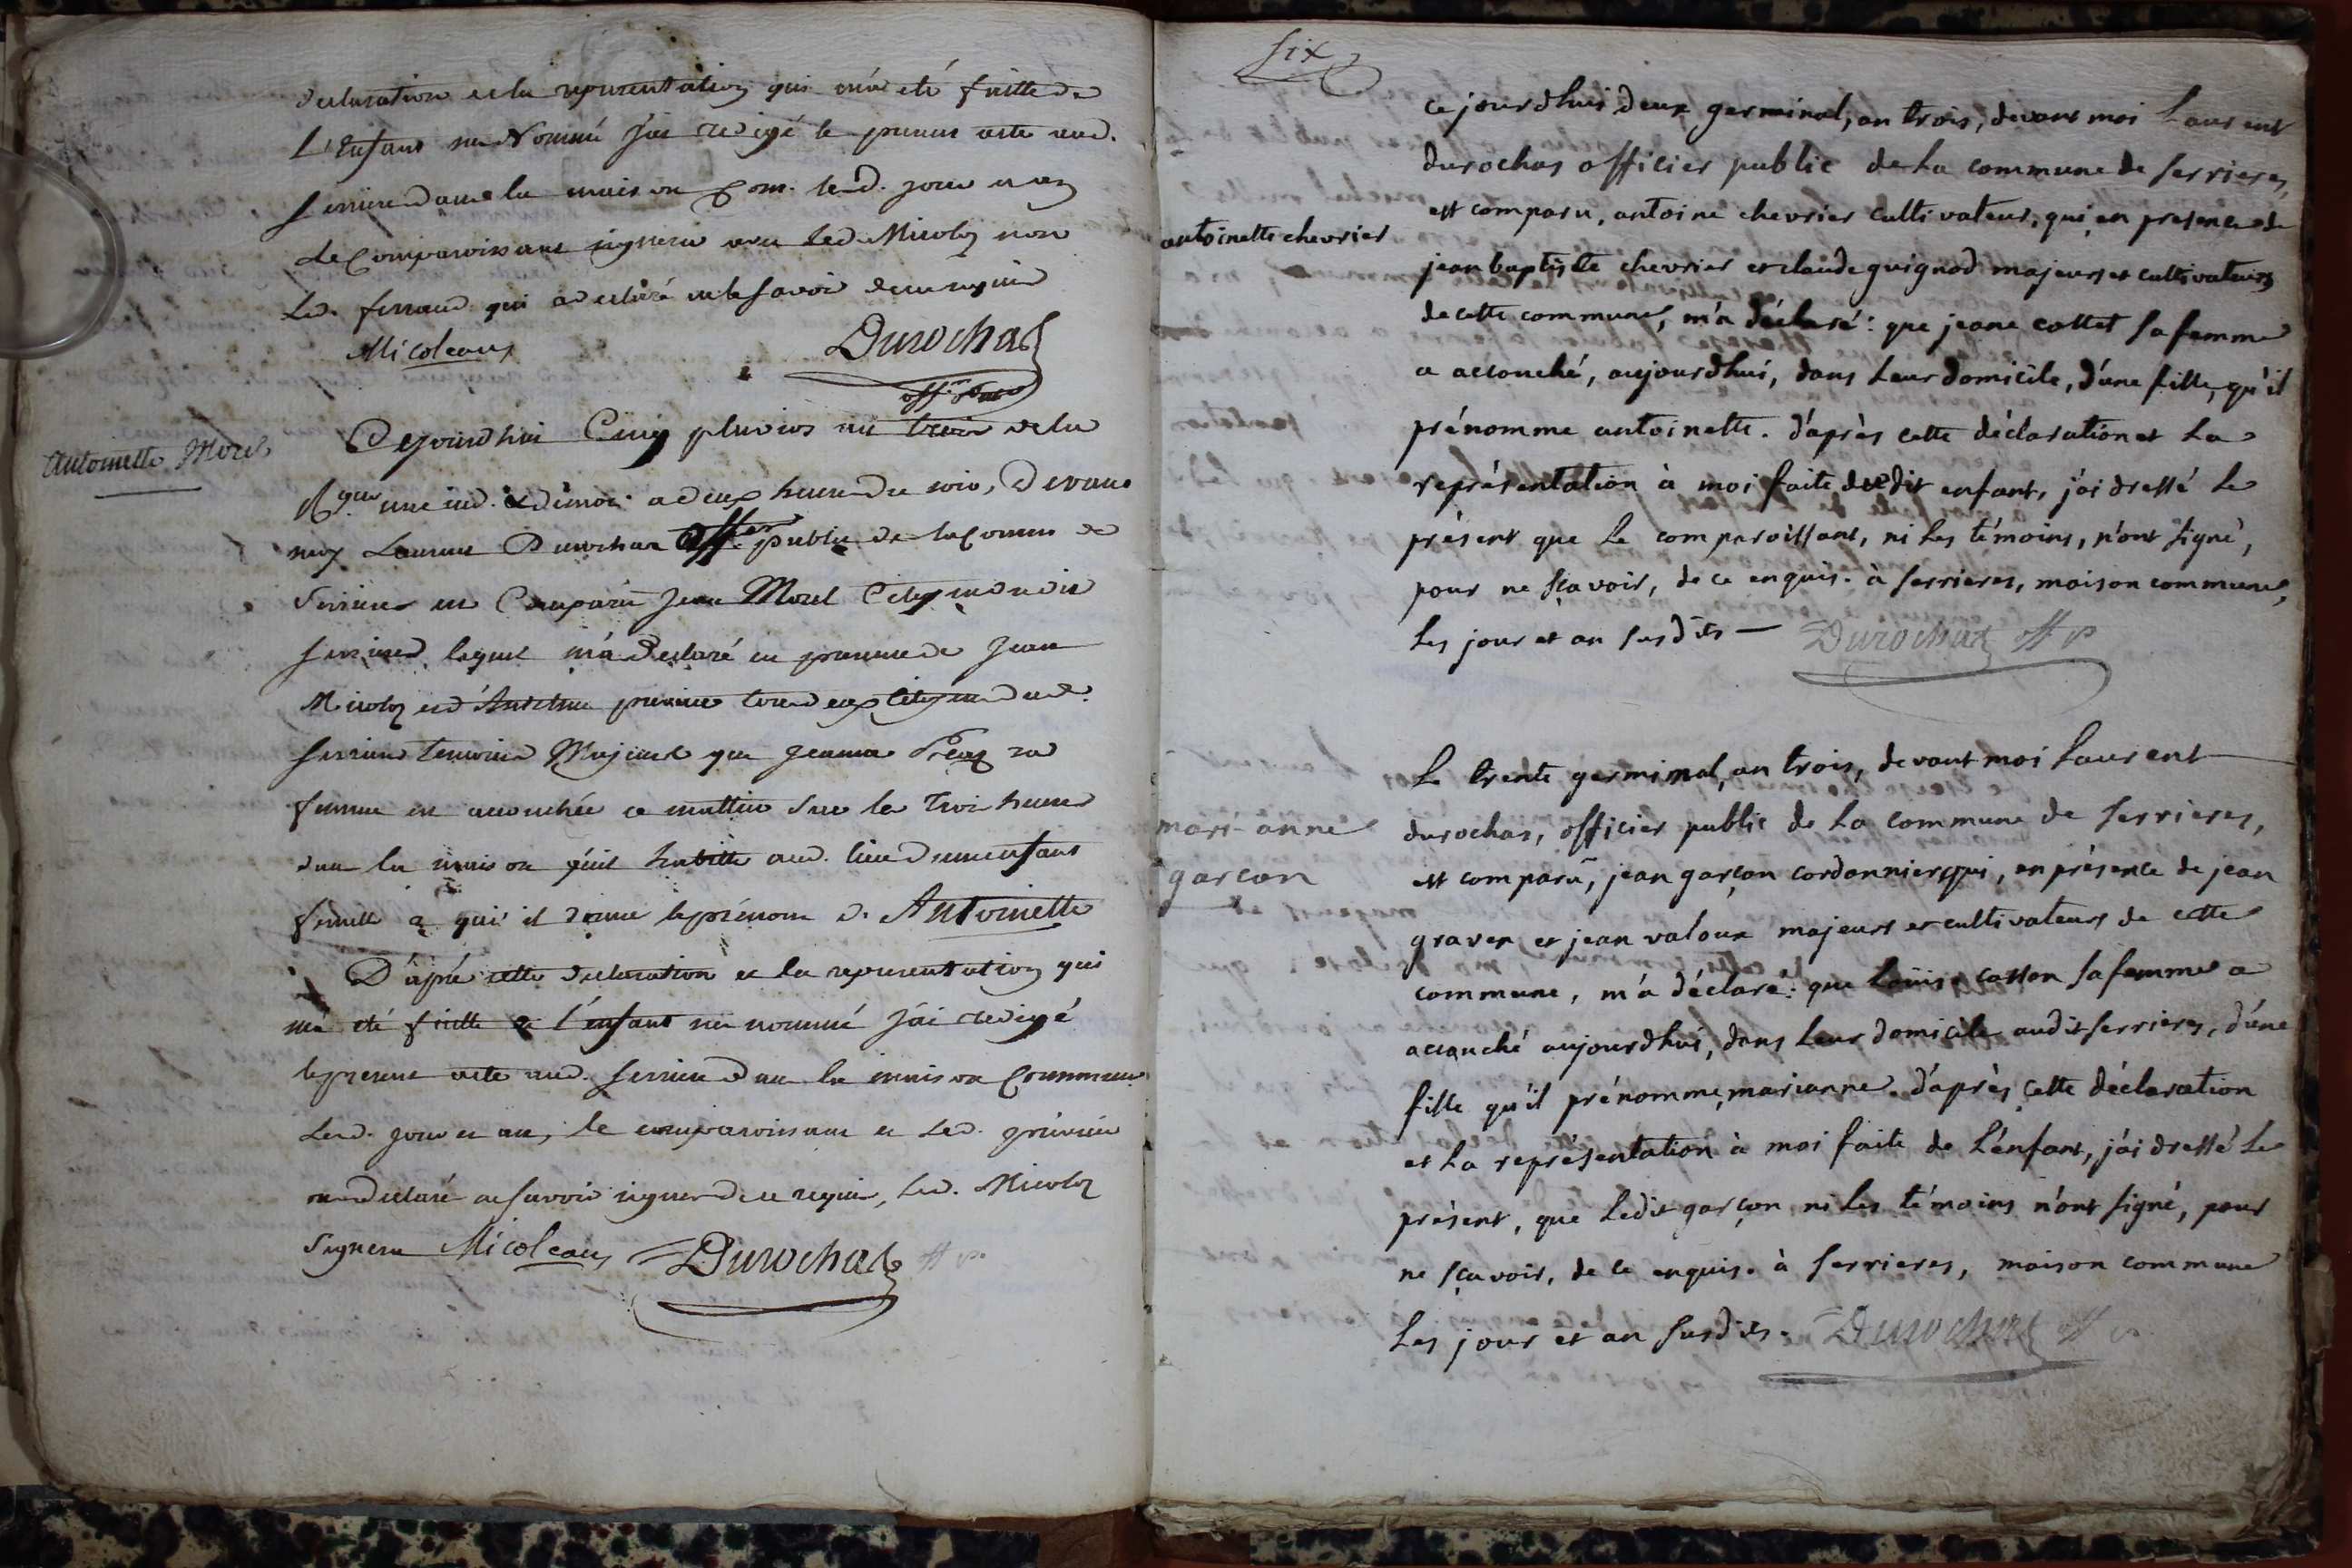 declaration et la representation qui m'a eté faitte de
L'Enfant sus Nommé j'ai redigé le present acte aud.
Serrieres dans la maison Com. led. jour et an
Le Comparoissant signera avec led. Micoloz non
Led. ferrand qui a declaré ne le savoir de ce requis
Micoleaux Durochat
off. pub.
Antoinette Morel
Cejourdhui Cinq pluvios an trois de la
Rque une ind. & dimoc. a deux heures du soir, Devant
moy Laurent Durochat Offer public de la Comm de
Serrieres est Comparu Jean Morel Citoyen dudit
Serrieres lequel m'a Declaré en presence de Jean
Micoloz et d'Antelme tous deux Citoyens dud.
Serrieres temoins Majeurs que Jeanne sa
femme est accouchée ce mattin sur les Trois heures
dans la maison qu'il habitte aud. lieu d'un enfant
femelle a qui il donne le prénom d. Antoinette
D'après cette declaration et la representation qui
m'a eté faitte de l'enfant sus nommé j'ai redigé
le present acte aud. Serrieres dans la maison Commune
Led. jour et an, le comparoissant et led.
ont declaré ne savoir signer de ce requis, led. Micoloz
Signera Micoleaux Durochat off p.
Six
ce jourdhui deux germinal, an trois, devant moi Laurent
durochas officier public de La commune de Serrieres,
est comparu, antoine chevrier cultivateur, qui, en presence de
antoinette chevrier
jean baptiste chevrier et claude guignod majeurs et cultivateurs
de cette commune, m'a déclaré : que jeane cottet sa femme
a accouché, aujourdhui, dans Leur domicile, d'une fille, qu'il
prénomme antoinette. d'après cette déclaration et La
représentation à moi faite dudit enfant, j'ai dressé Le
présent que Le comparoissant, ni Les témoins, n'ont signé,
pour ne sçavoir, de ce enquis. à serrieres, maison commune,
Les jour et an susdits — Durochat off p
Le trente germinal, an trois, devant moi Laurent
mari-anne
durochas, officier public de La commune de serrieres,
garcon
est comparu, jean garçon cordonnier, qui, en présence de jean
graver et jean valoux majeurs et cultivateurs de cette
commune, m'a déclaré : que Louise catton sa femme a
accouché aujourdhui, dans Leur domicile audit serrieres, d'une
fille qu'il prénomme, marianne. d'après cette déclaration
et La représentation à moi faite de L'énfant, j'ai dressé Le
présent, que Ledit garçon ni Les témoins n'ont signé, pour
ne sçavoir, de ce enquis. à serrieres, maison commune
Les jour et an susdits. Durochat off p.